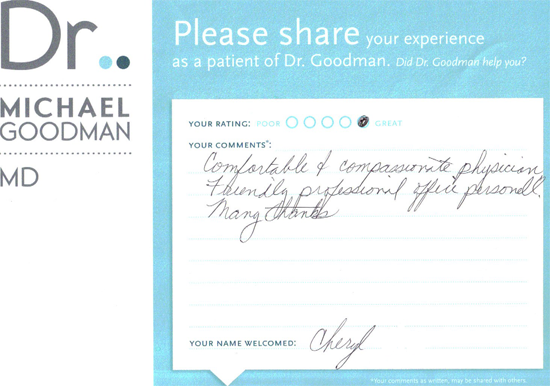 Dr..
MICHAEL
GOODMAN
MD
Please share your experience
as a patient of Dr. Goodman. Did Dr. Goodman help you?
YOUR RATING: POOR GREAT
YOUR COMMENTS*:
Comfortable & compassionate physician
Friendly, professional office personell.
Many thanks
YOUR NAME WELCOMED: Cheryl
*Your comments as written, may be shared with others.